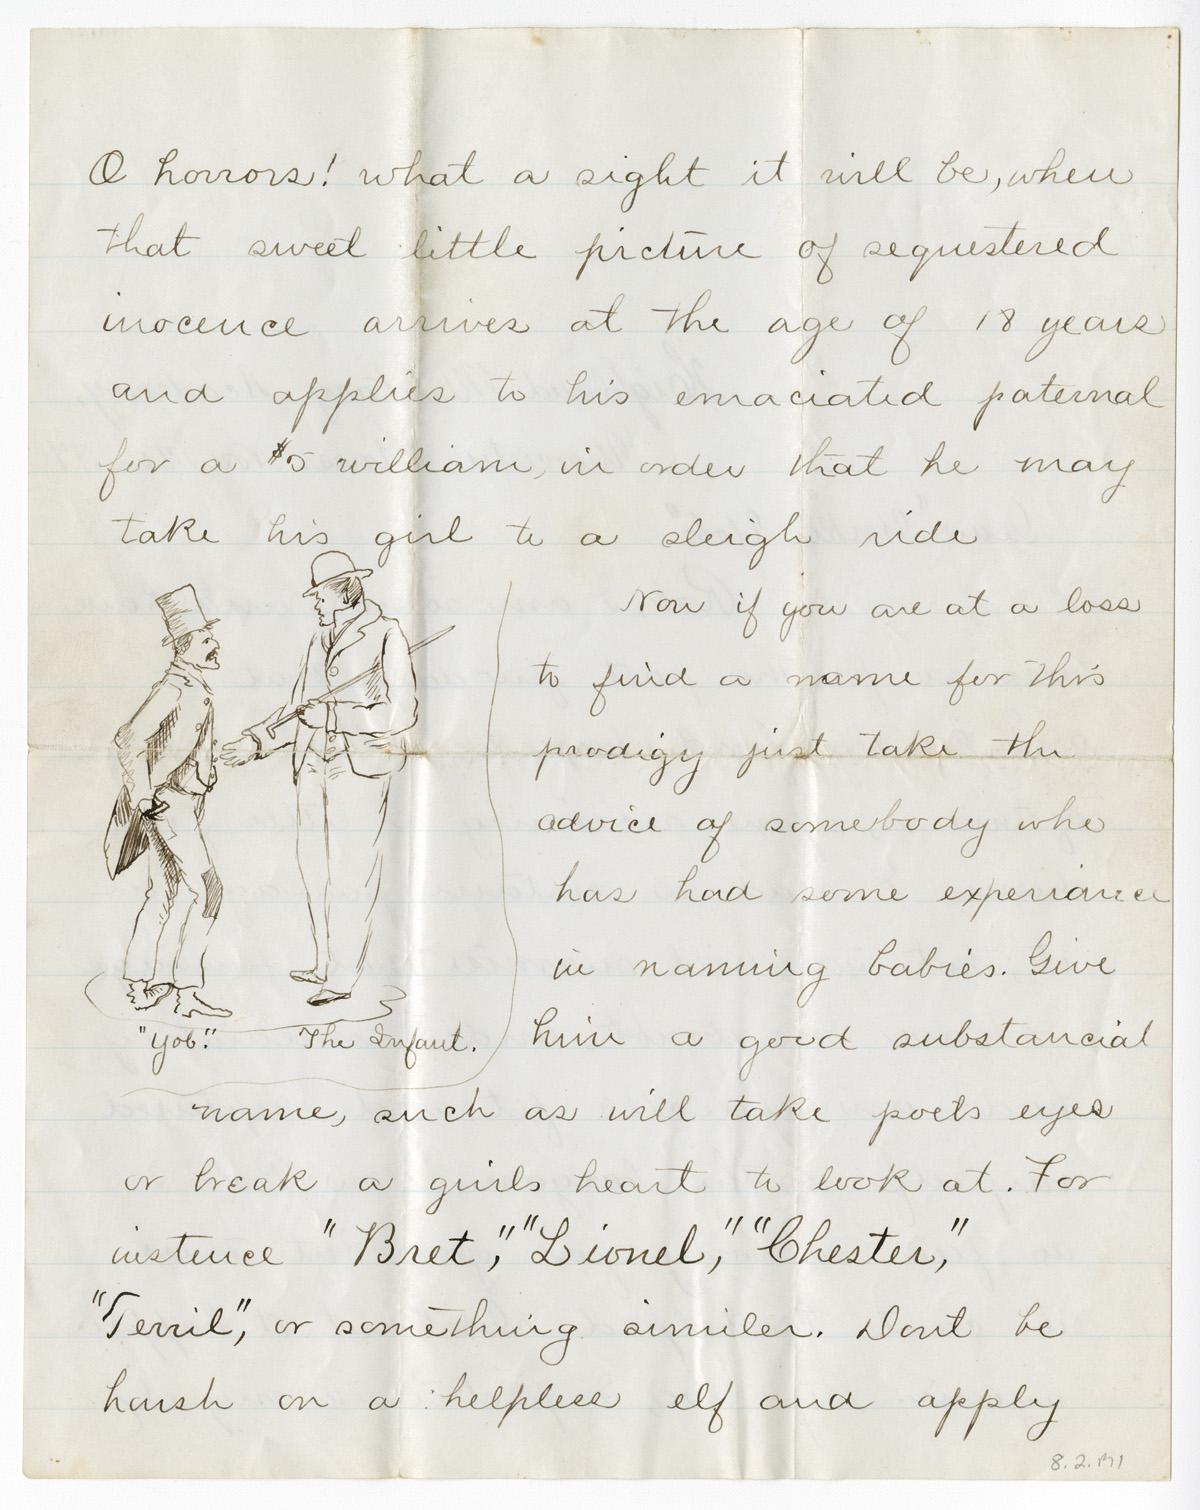 O horrors! what a sight it will be, when
that sweet little picture of sequestered
inocence arrives at the age of 18 years
and applies to his emaciated paternal
for a $5 william, in order that he may
take his girl to a sleigh ride
Now if you are at a loss
to find a name for this
prodigy just take the
advice of somebody who
has had some experiance
in naming babies. Give
him a good substancial
"Yob." The Infant.
name, such as will take poets eyes
or break a girls heart to look at. For
instence "Bret," "Lionel," "Chester,"
"Terril", or something similer. Dont be
harsh on a helpless elf and apply
8.2.M1